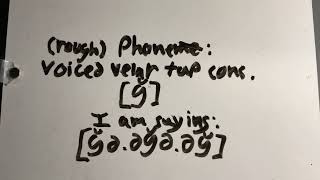 (rough) Phoneme:
Voiced velar tap cons.
[ğ]
I am saying:
[ğə.əğə.əğ]